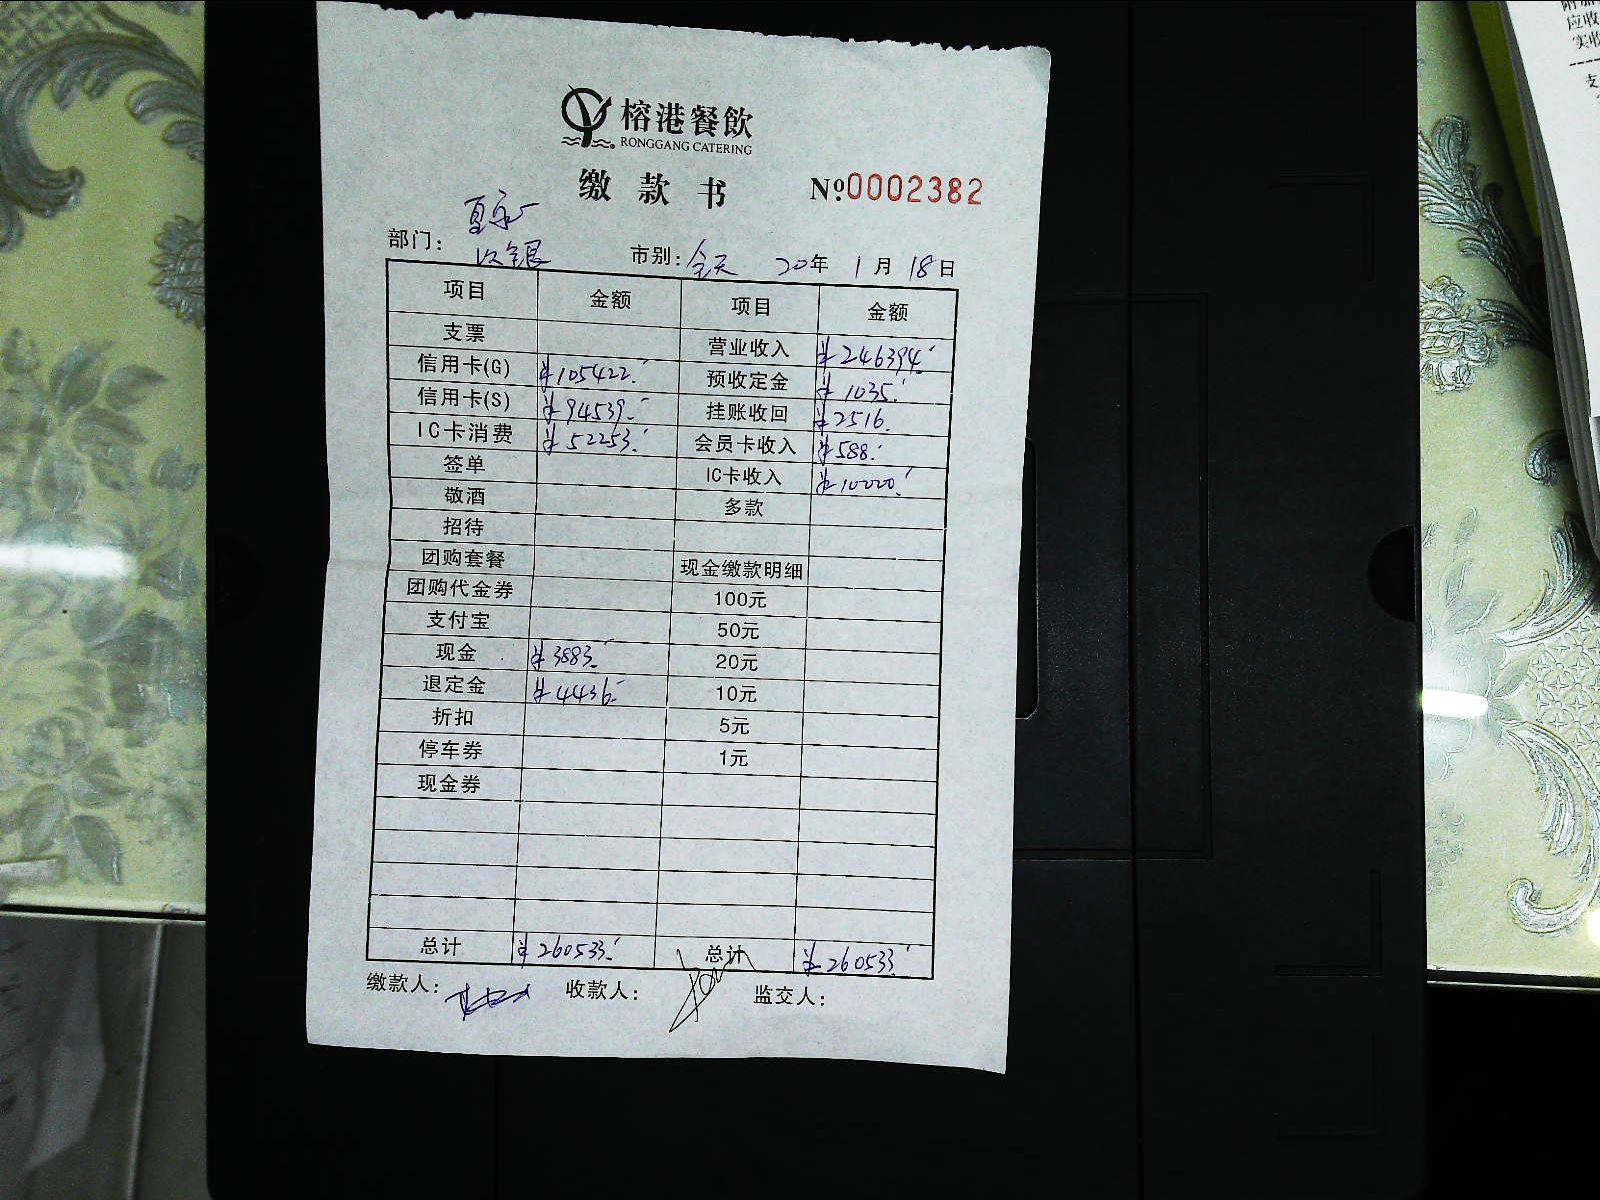 榕港餐飲
RONGGANG CATERING
缴款书 №0002382
部门: 收银 市别: 全天 20年 1月 18日
项目 金额 项目 金额
支票 营业收入 ¥246394.-
信用卡(G) ¥105422.- 预收定金 ¥1035.-
信用卡(S) ¥94539.- 挂账收回 ¥2516.
IC卡消费 ¥52253.- 会员卡收入 ¥588.-
签单 IC卡收入 ¥10000.-
敬酒 多款
招待
团购套餐 现金缴款明细
团购代金券 100元
支付宝 50元
现金 ¥3883.- 20元
退定金 ¥4436.- 10元
折扣 5元
停车券 1元
现金券
总计 ¥260533.- 总计 ¥260533.-
缴款人: 收款人: 监交人:
应收
实收
支